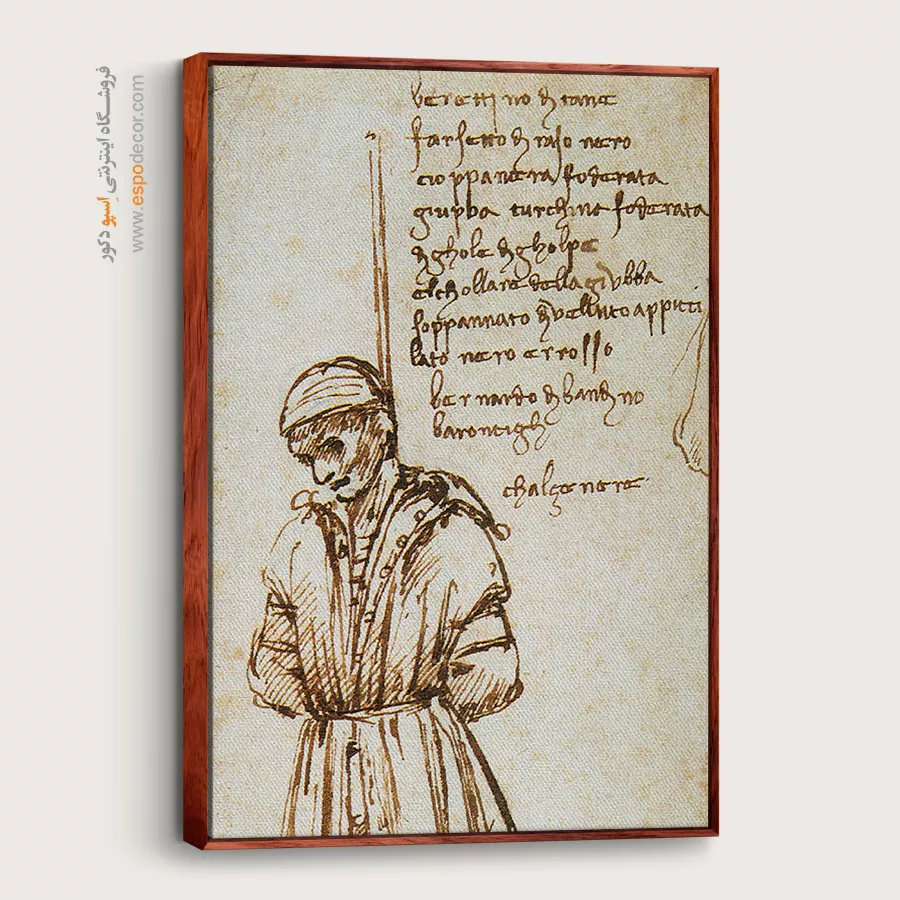 فروشگاه اینترنتی اِسپو دکور
www.espodecor.com
berettino di tane
farsetto di raso nero
cioppa nera foderata
giubba turchina foderata
di ghole di gholpe
elchollare della giubba
soppannato di velluto appicci
lato nero e rrosso
bernardo di bandino
baroncigli
chalze nere